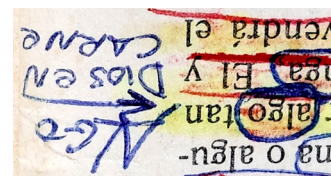 na o algu-
algo tan
ga. El y
vendrá el
ALGO
Dios en
CARNE